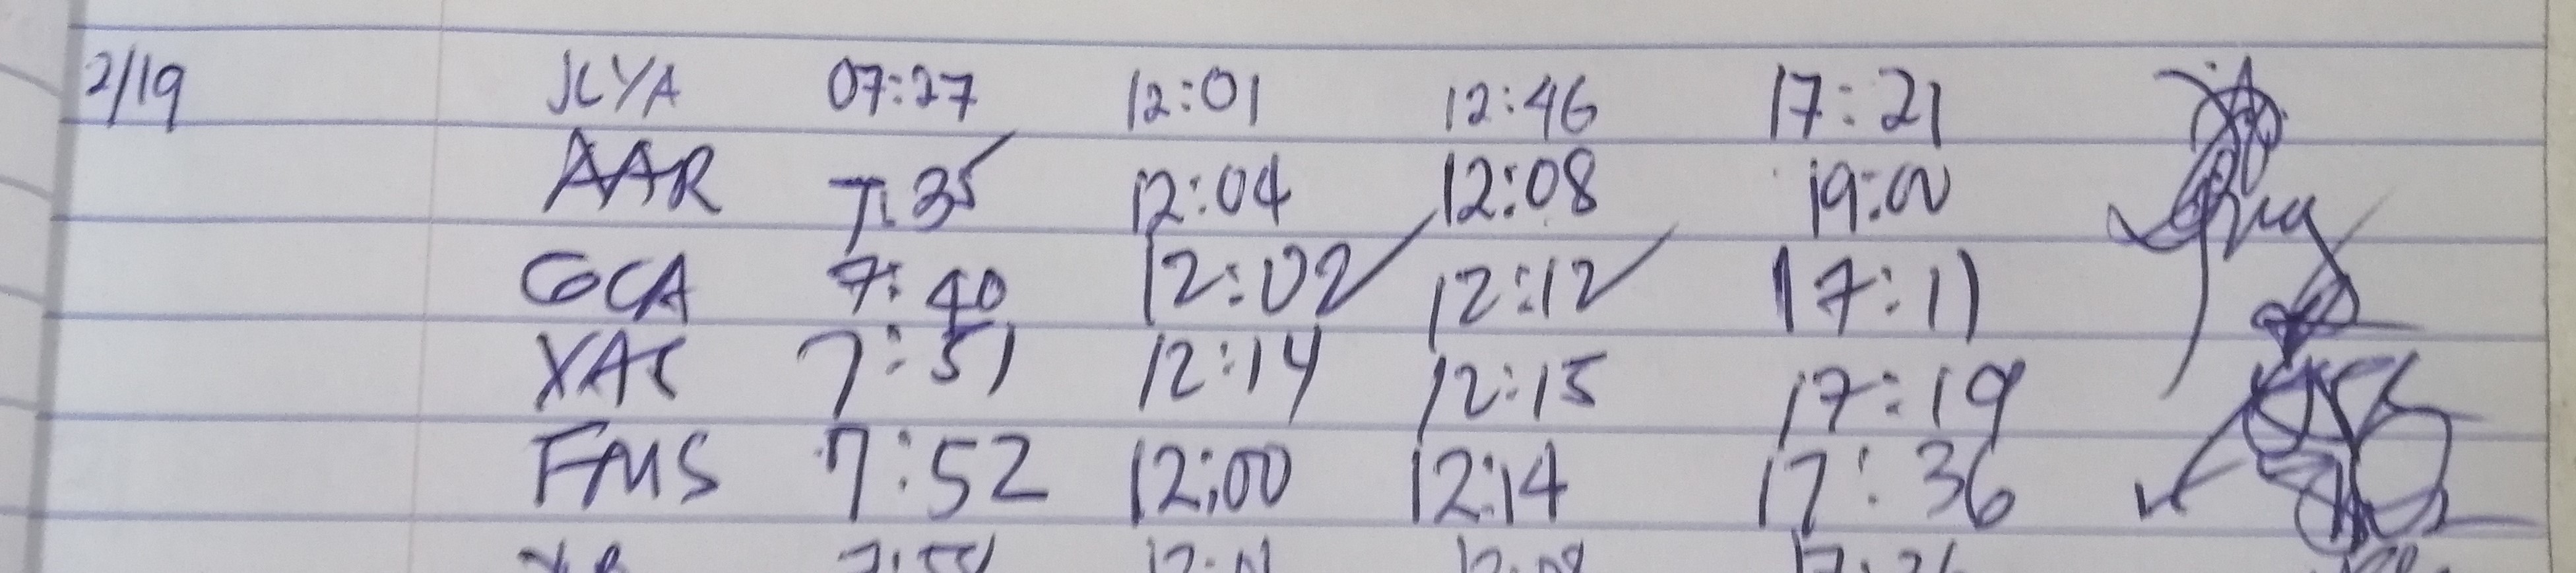 2/19 JLYA 07:27 12:01 12:46 17:21
AAR 7:35 12:04 12:08 19:00
GCA 7:40 12:02 12:12 17:11
7:51 12:14 12:15 17:19
FMS 7:52 12:00 12:14 17:36